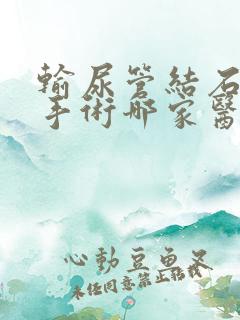 輸尿管結石
手術哪家醫
心動豆魚叉
未经同意禁止转载